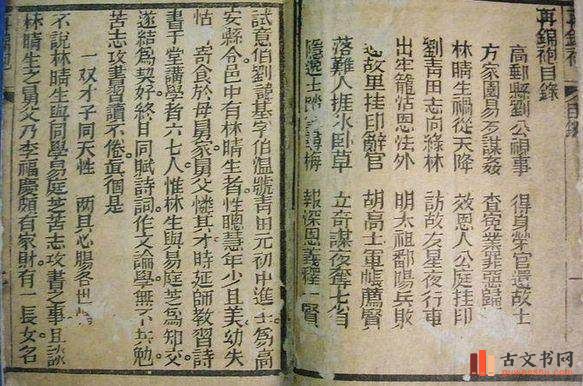 再錦袍目錄
高郵縣劉公祠事 得身榮官還故土
方家園易矛謀姦 查冤業罪惡歸
林晴生禍從天降 效恩人公庭挂印
劉青田志向綠林 訪故友星夜行車
出牢籠怙恩外 明太祖鄱陽兵敗
返故里挂印辭官 胡高士軍帳薦賢
落難人捱氷卧草 立奇謀夜奪七省
隱逸士尋梅 報深恩義釋一賢
試意伯劉諱基字伯溫號青田元初中進士爲高
安縣令邑中有林晴生者性聰慧年少且美幼失
怙寄食於母舅家舅父憐其才時延師教習詩
書于堂講學者六七人惟林生與易庭芝爲知交
遂結爲契好終日同賦詩詞作文論學無不共勉
苦志攻書習讀不倦眞個是
一双才子同天性 兩具心腸各世
不說林晴生與同學易庭芝苦志攻書之事且談
林晴生之舅父乃李福慶頗有家財有一長女名
古文书网